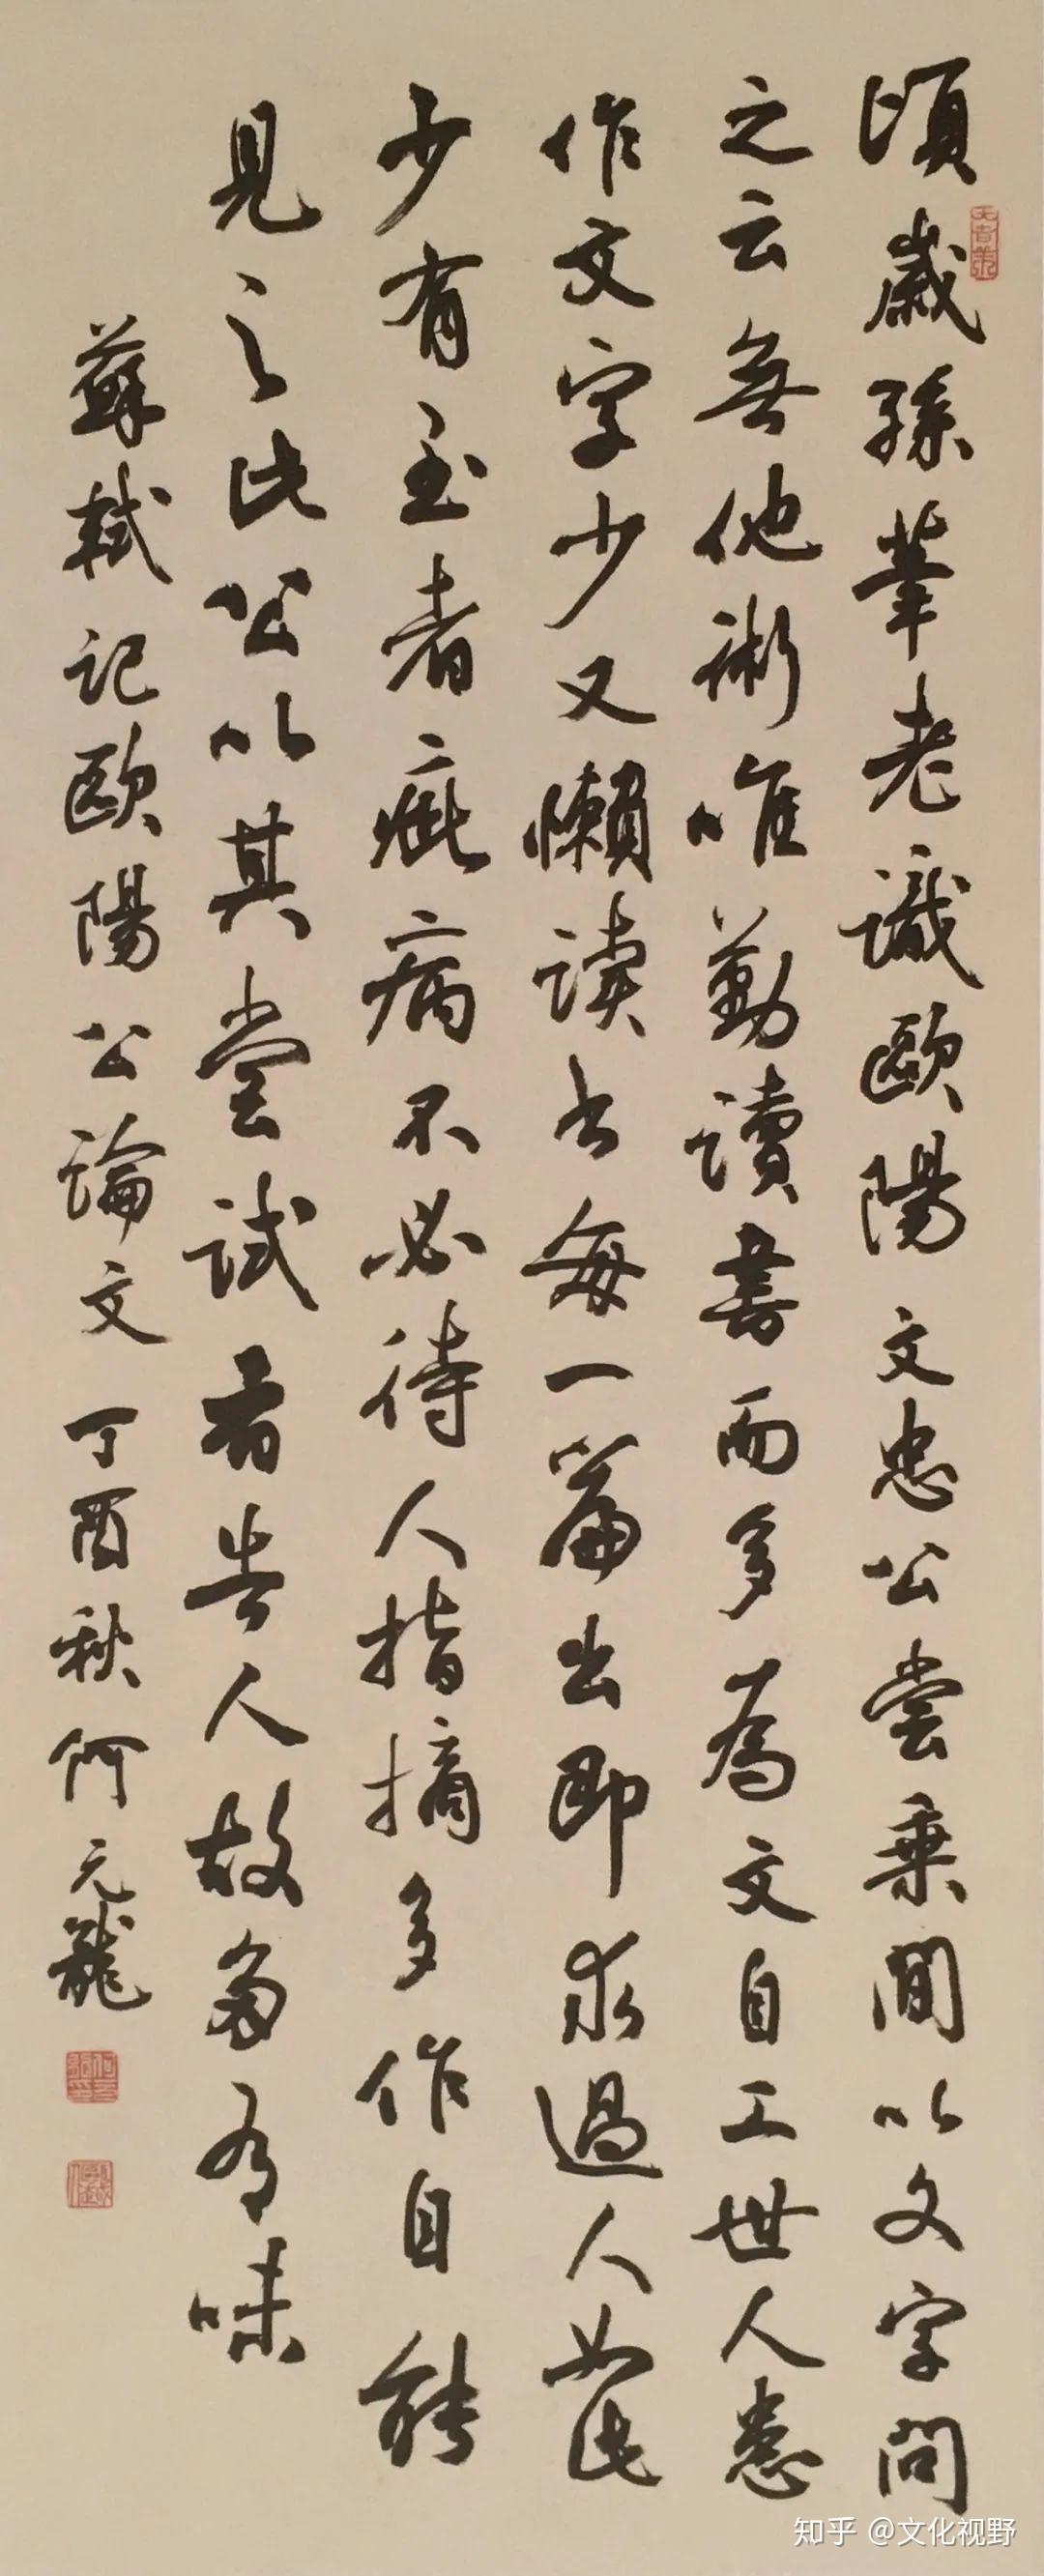 頃歲孫莘老識歐陽文忠公嘗乘間以文字問
之云無他術唯勤讀書而多為文自工世人患
作文字少又懶讀書每一篇出即求過人如此
少有至者疵病不必待人指摘多作自能
見之此公以其嘗試者告人故多有味
蘇軾記歐陽公論文 丁酉秋何元龍
知乎 @文化视野